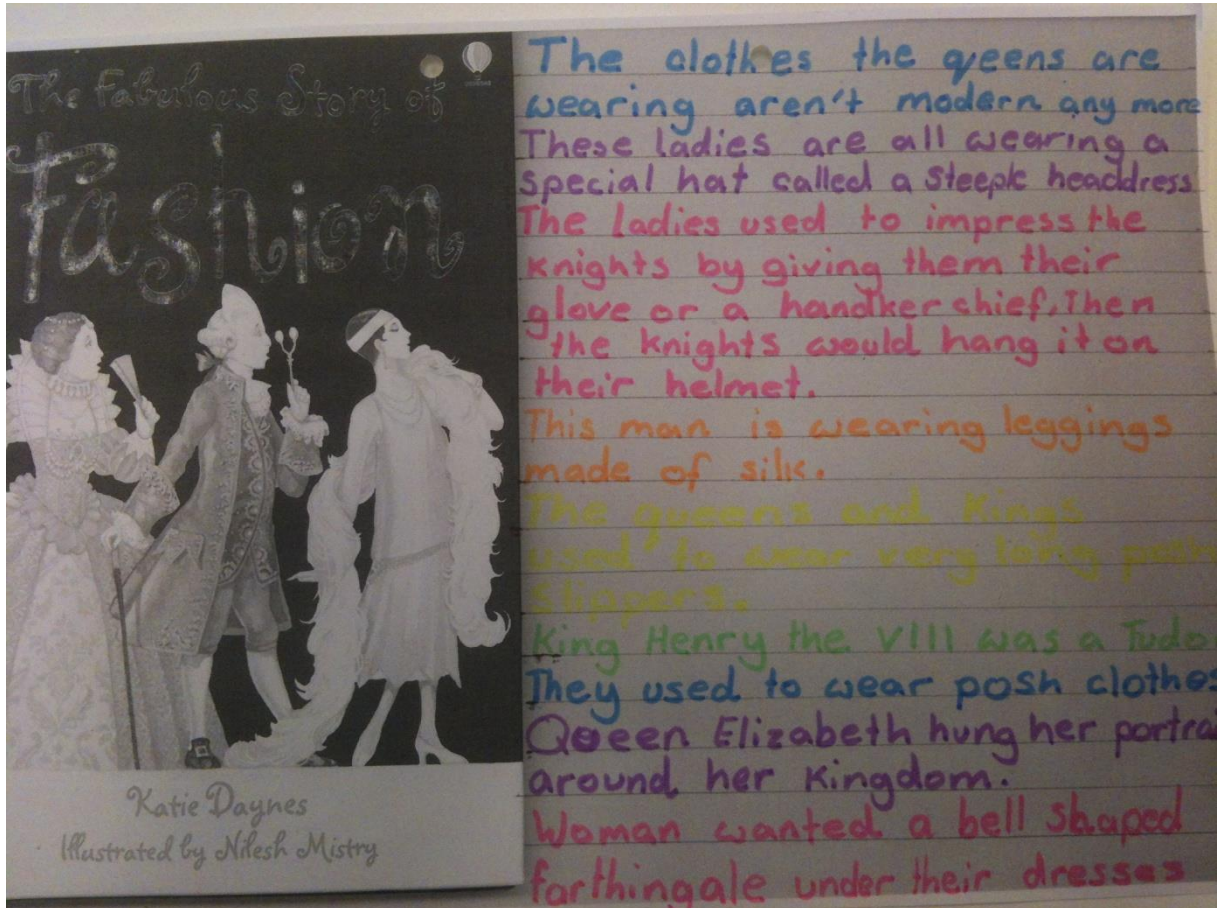 The Fabulous Story of
Fashion
Katie Daynes
Illustrated by Nilesh Mistry
The clothes the qeens are
wearing aren't modern any more
These ladies are all wearing a
special hat called a steeple headdress
The ladies used to impress the
knights by giving them their
glove or a handkerchief, Then
the knights would hang it on
their helmet.
This man is wearing leggings
made of silk.
The queens and Kings
used to wear very long posh
slippers.
King Henry the VIII was a Tudo
They used to wear posh clothes
Qoeen Elizabeth hung her portra
around her Kingdom.
Woman wanted a bell shaped
farthingale under their dresses